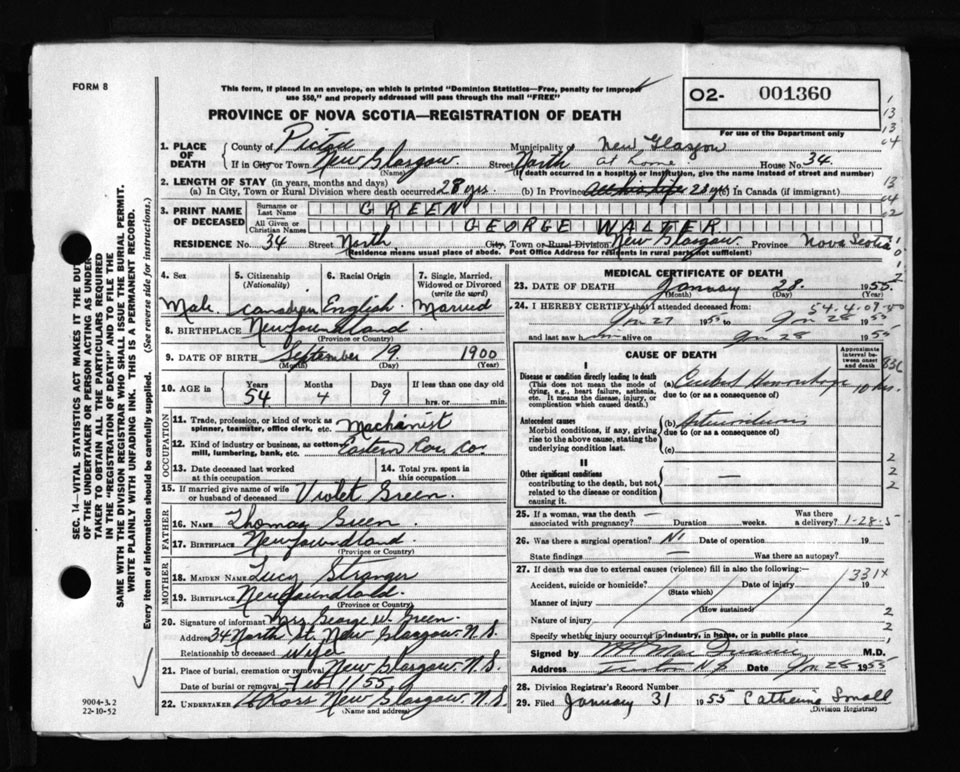 FORM 8
This form, if placed in an envelope, on which is printed "Dominion Statistics—Free, penalty for improper
use $50," and properly addressed will pass through the mail "FREE"
O2- 001360
PROVINCE OF NOVA SCOTIA—REGISTRATION OF DEATH
For use of the Department only
1. PLACE OF DEATH
County of Pictou Municipality of New Glasgow
If in City or Town New Glasgow (Name) Street North at home House No. 34.
(If death occurred in a hospital or institution, give the name instead of street and number)
2. LENGTH OF STAY (in years, months and days)
(a) In City, Town or Rural Division where death occurred 28 yrs. (b) In Province 28 yrs (c) In Canada (if immigrant)
3. PRINT NAME OF DECEASED
Surname or Last Name GREEN
All Given or Christian Names GEORGE WALTER
RESIDENCE No. 34 Street North City, Town or Rural Division New Glasgow. Province Nova Scotia
(Residence means usual place of abode. Post Office Address for residents in rural parts not sufficient)
4. Sex
Male
5. Citizenship (Nationality)
Canadian
6. Racial Origin
English
7. Single, Married, Widowed or Divorced (write the word)
Married
8. BIRTHPLACE Newfoundland
(Province or Country)
9. DATE OF BIRTH September 19 1900
(Month) (Day) (Year)
10. AGE in Years 54 Months 4 Days 9 If less than one day hrs. or min.
OCCUPATION
11. Trade, profession, or kind of work as spinner, teamster, office clerk, etc. Machanist
12. Kind of industry or business, as cotton mill, lumbering, bank, etc. Eastern Car Co.
13. Date deceased last worked at this occupation
14. Total yrs. spent in this occupation
15. If married give name of wife or husband of deceased Violet Green.
FATHER
16. NAME Thomas Green.
17. BIRTHPLACE Newfoundland
(Province or Country)
MOTHER
18. MAIDEN NAME Lucy Stranger
19. BIRTHPLACE Newfoundland.
(Province or Country)
20. Signature of informant Mrs George W. Green.
Address 34 North St. New Glasgow. N.S.
Relationship to deceased wife
21. Place of burial, cremation or removal New Glasgow. N.S.
Date of burial or removal Feb 1/55
22. UNDERTAKER Ross New Glasgow. N.S
(Name and address)
MEDICAL CERTIFICATE OF DEATH
23. DATE OF DEATH January 28. 1955.
(Month) (Day) (Year)
54-4-09-00
24. I HEREBY CERTIFY that I attended deceased from
Jan 27 1955 to Jan 28 1955
and last saw him alive on Jan 28 1955
CAUSE OF DEATH
Approximate interval between onset and death
I
Disease or condition directly leading to death
(This does not mean the mode of dying, e.g., heart failure, asthenia, etc. It means the disease, injury, or complication which caused death.)
(a) Cerebral Hemorrhage 10 hrs.
due to (or as a consequence of)
Antecedent causes
Morbid conditions, if any, giving rise to the above cause, stating the underlying condition last.
(b)
due to (or as a consequence of)
(c)
II
Other significant conditions contributing to the death, but not related to the disease or condition causing it. —
25. If a woman, was the death associated with pregnancy? — Duration weeks. Was there a delivery? 1-28-5
26. Was there a surgical operation? No Date of operation 19
State findings — Was there an autopsy?
27. If death was due to external causes (violence) fill in also the following:— 331X
Accident, suicide or homicide? (State which) Date of injury 19
Manner of injury (How sustained)
Nature of injury
Specify whether injury occurred in industry, in home, or in public place
Signed by M.D.
Address N S Date Jan 28 1955
28. Division Registrar's Record Number
29. Filed January 31 1955 Catherine Small
(Division Registrar)
SEC. 14—VITAL STATISTICS ACT MAKES IT THE DUTY
OF THE UNDERTAKER OR PERSON ACTING AS UNDER-
TAKER TO OBTAIN ALL THE PARTICULARS REQUIRED
IN THE "REGISTRATION OF DEATH" AND TO FILE THE
SAME WITH THE DIVISION REGISTRAR WHO SHALL ISSUE THE BURIAL PERMIT.
WRITE PLAINLY WITH UNFADING INK. THIS IS A PERMANENT RECORD.
Every item of information should be carefully supplied. (See reverse side for instructions.)
9004-3.2
22-10-52